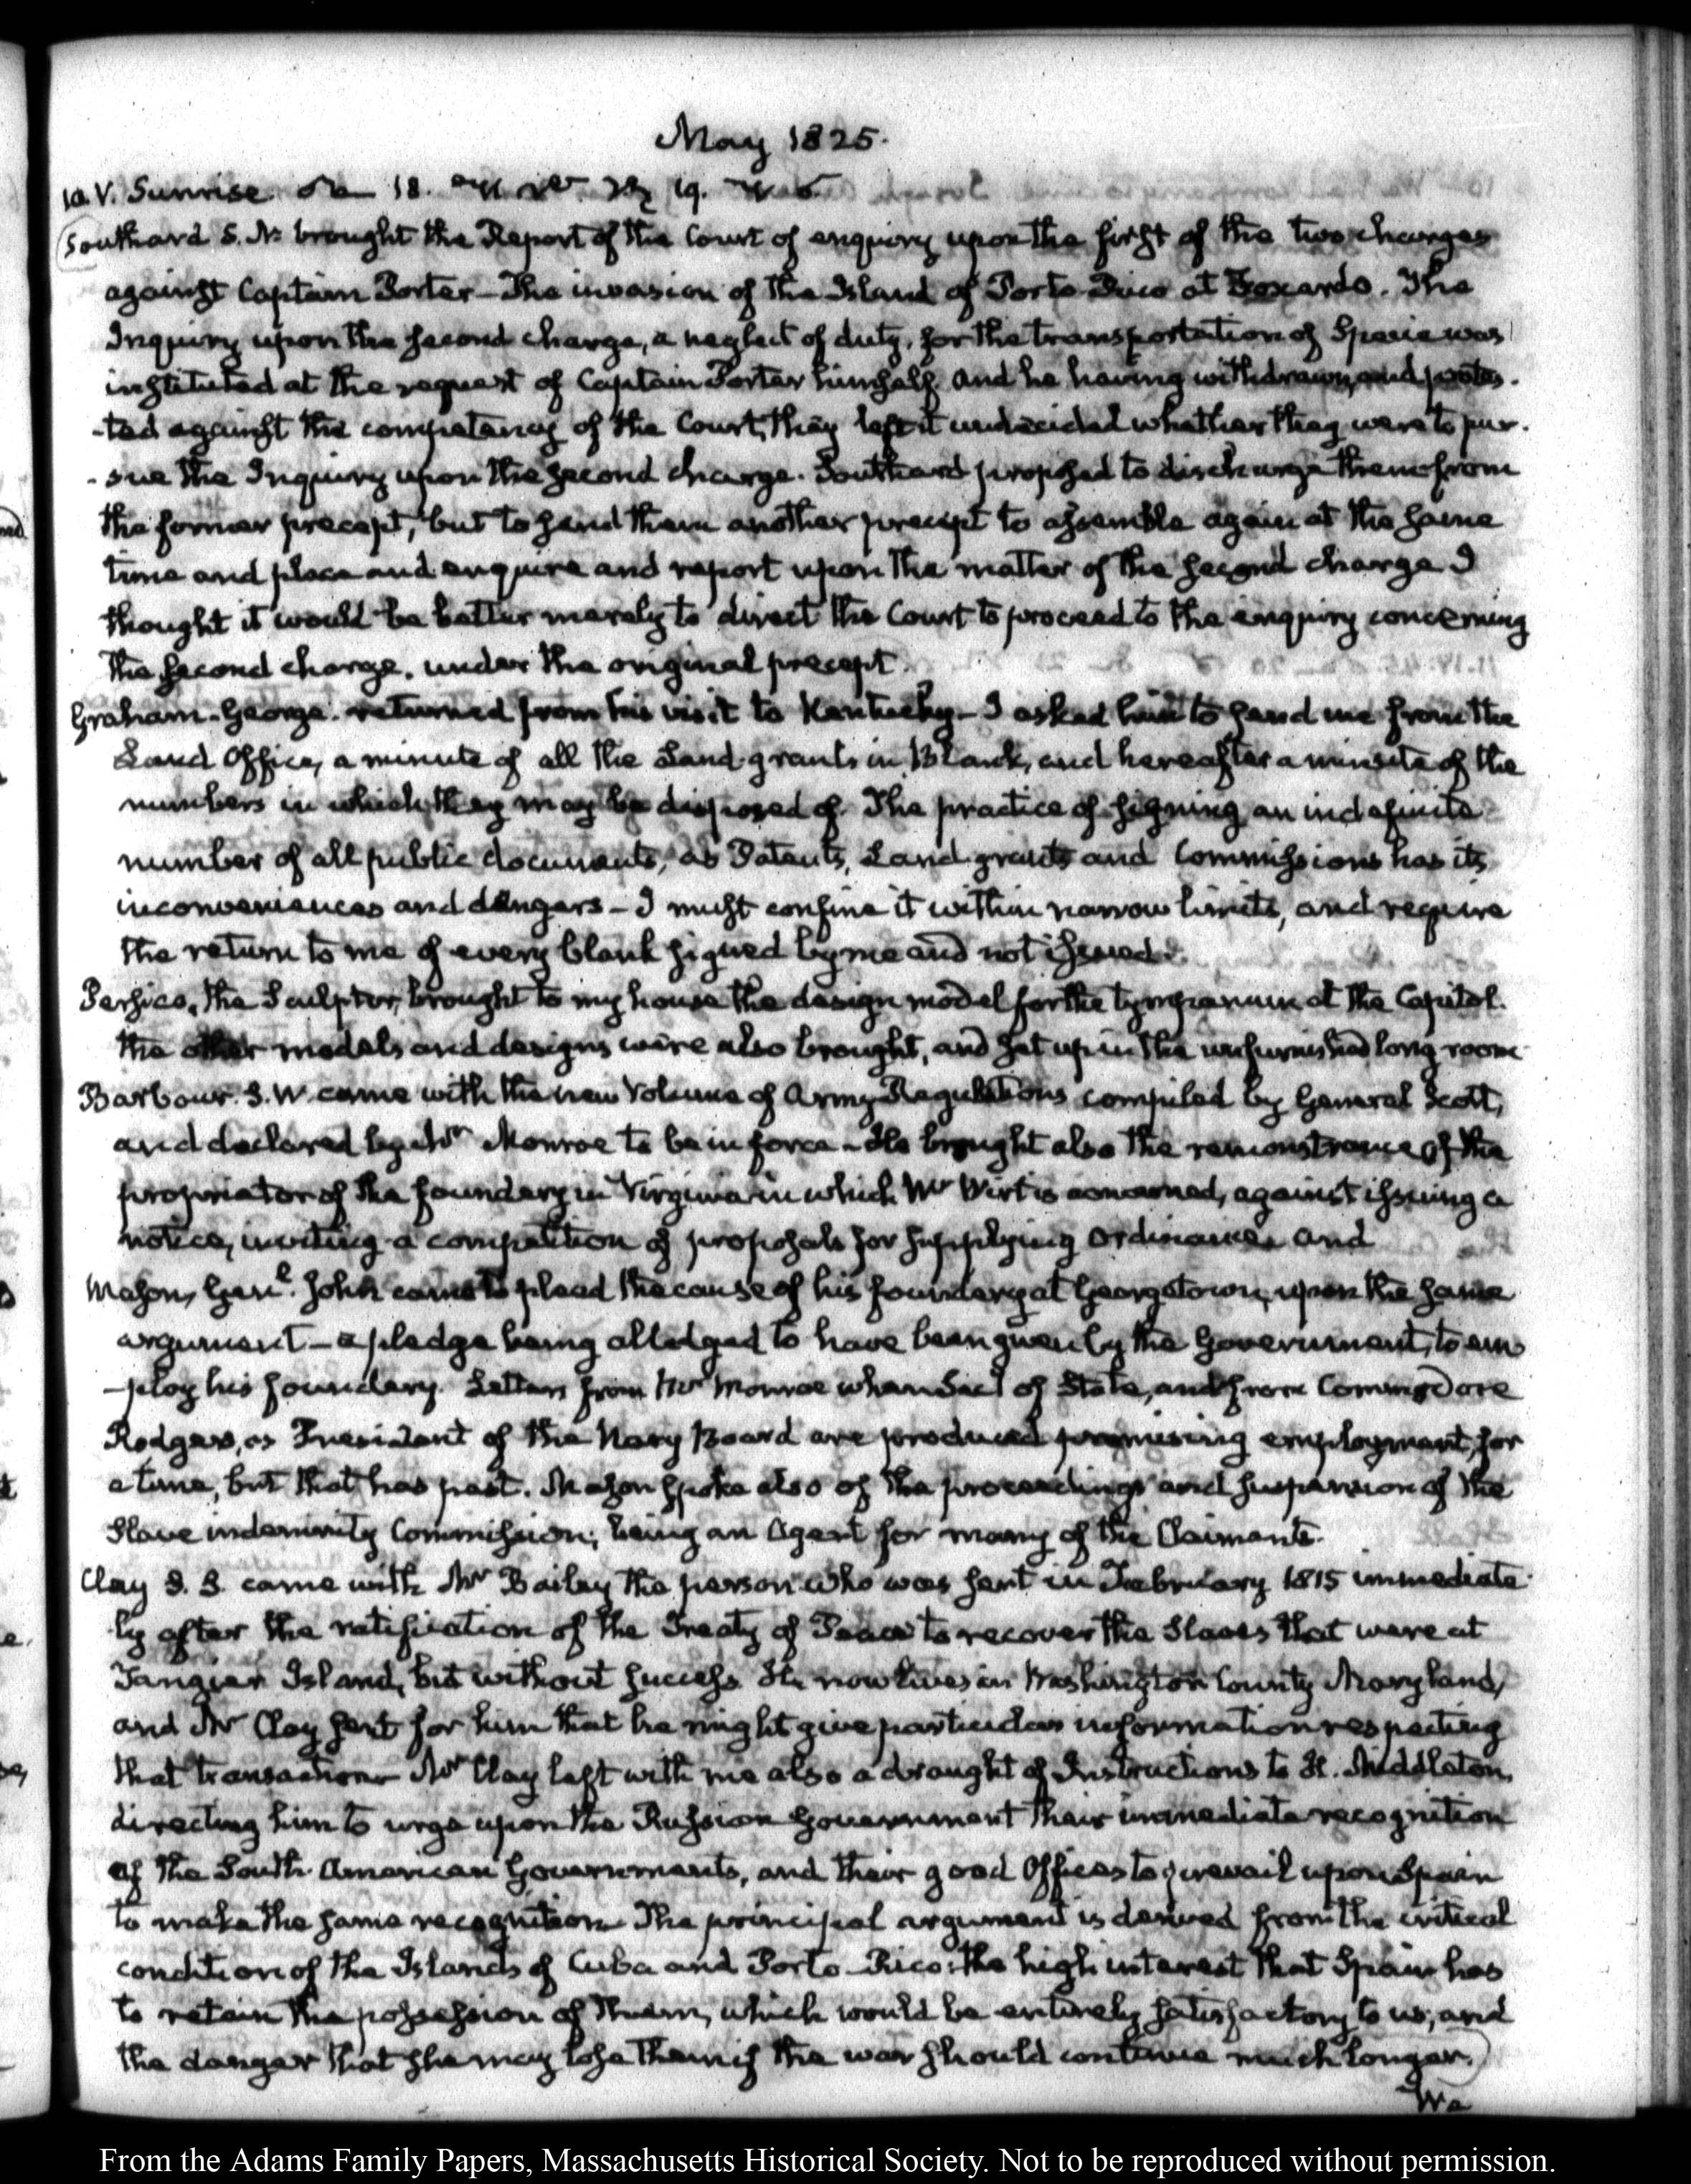 May 1825.
10. V. Sunrise 18. 19.
Southard S. N. brought the Report of the Court of enquiry upon the first of the two charges
against Captain Porter — The invasion of the Island of Porto Rico at Foxardo. The
Inquiry upon the second charge, a neglect of duty, for the transportation of Specie was
instituted at the request of Captain Porter himself and he having withdrawn, and protes-
-ted against the competency of the Court, they left it undecided whether they were to pur-
-sue the Inquiry upon the second charge. Southard proposed to discharge them from
the former precept, but to send them another precept to assemble again at the same
time and place and enquire and report upon the matter of the second charge I
thought it would be better merely to direct the Court to proceed to the enquiry concerning
the second charge, under the original precept.
Graham. George. returned from his visit to Kentucky — I asked him to send me from the
Land Office, a minute of all the Land grants in Blank, and hereafter a minute of the
numbers in which they may be disposed of. The practice of signing an indefinite
number of all public documents, as Patents, Land grants and Commissions has its
inconveniences and dangers — I must confine it within narrow limits, and require
the return to me of every blank signed by me and not issued.
Persico, the Sculptor, brought to my house the design model for the tympanum at the Capitol.
the other models and designs were also brought, and set up in the unfurnished long room
Barbour. S. W. came with the new Volume of Army Regulations compiled by General Scott,
and declared by Mr Monroe to be in force — He brought also the remonstrance of the
proprietor of the foundery in Virginia in which Mr Wirt is concerned, against issuing a
notice, inviting a competition of proposals for supplying ordinance and
Mason, Genl. John came to plead the cause of his foundery at Georgetown, upon the same
argument — a pledge being alledged to have been given by the Government, to em
-ploy his foundery. Letters from Mr Monroe when Secy of State, and from Commodore
Rodgers, as President of the Navy Board are produced promising employment, for
a time, but that has past. Mason spoke also of the proceedings and suspension of the
Slave indemnity Commission; being an Agent for many of the Claimants.
Clay S. S. came with Mr Bailey the person who was sent in February 1815 immediate-
ly after the ratification of the Treaty of Peace to recover the Slaves that were at
Tangier Island, but without success. He now lives in Washington County Maryland,
and Mr Clay sent for him that he might give particular information respecting
that transaction. Mr Clay left with me also a draught of Instructions to H. Middleton,
directing him to urge upon the Russian Government their immediate recognition
of the South American Governments, and their good Offices to prevail upon Spain
to make the same recognition. The principal argument is derived from the critical
condition of the Islands of Cuba and Porto-Rico: the high interest that Spain has
to retain the possession of them, which would be entirely satisfactory to us, and
the danger that she may lose them if the war should continue much longer.
We
From the Adams Family Papers, Massachusetts Historical Society. Not to be reproduced without permission.